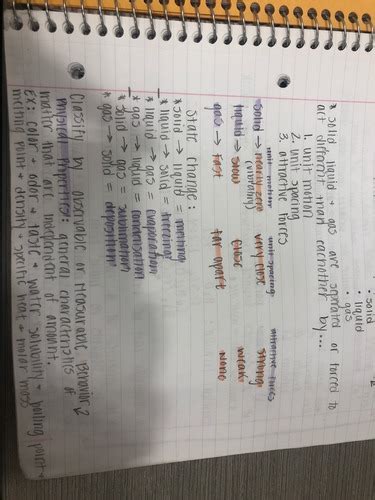 • solid
• liquid
• gas
* solid, liquid + gas are separated or forced to
act different from eachother by...
1. unit motion
2. unit spacing
3. attractive forces
unit motion unit spacing attractive forces
solid → near zero very close strong
(vibration)
liquid → slow close weak
gas → fast far apart none
State change:
* solid → liquid = melting
* liquid → solid = freezing
* liquid → gas = evaporation
* gas → liquid = condensation
* solid → gas = sublimation
* gas → solid = deposition
Classify by observable or Measurable Behavior
Physical Properties: general characteristics of
matter that are independent of amount.
Ex: color + odor + taste + water solubility + boiling point +
melting point + density, specific heat + molar mass